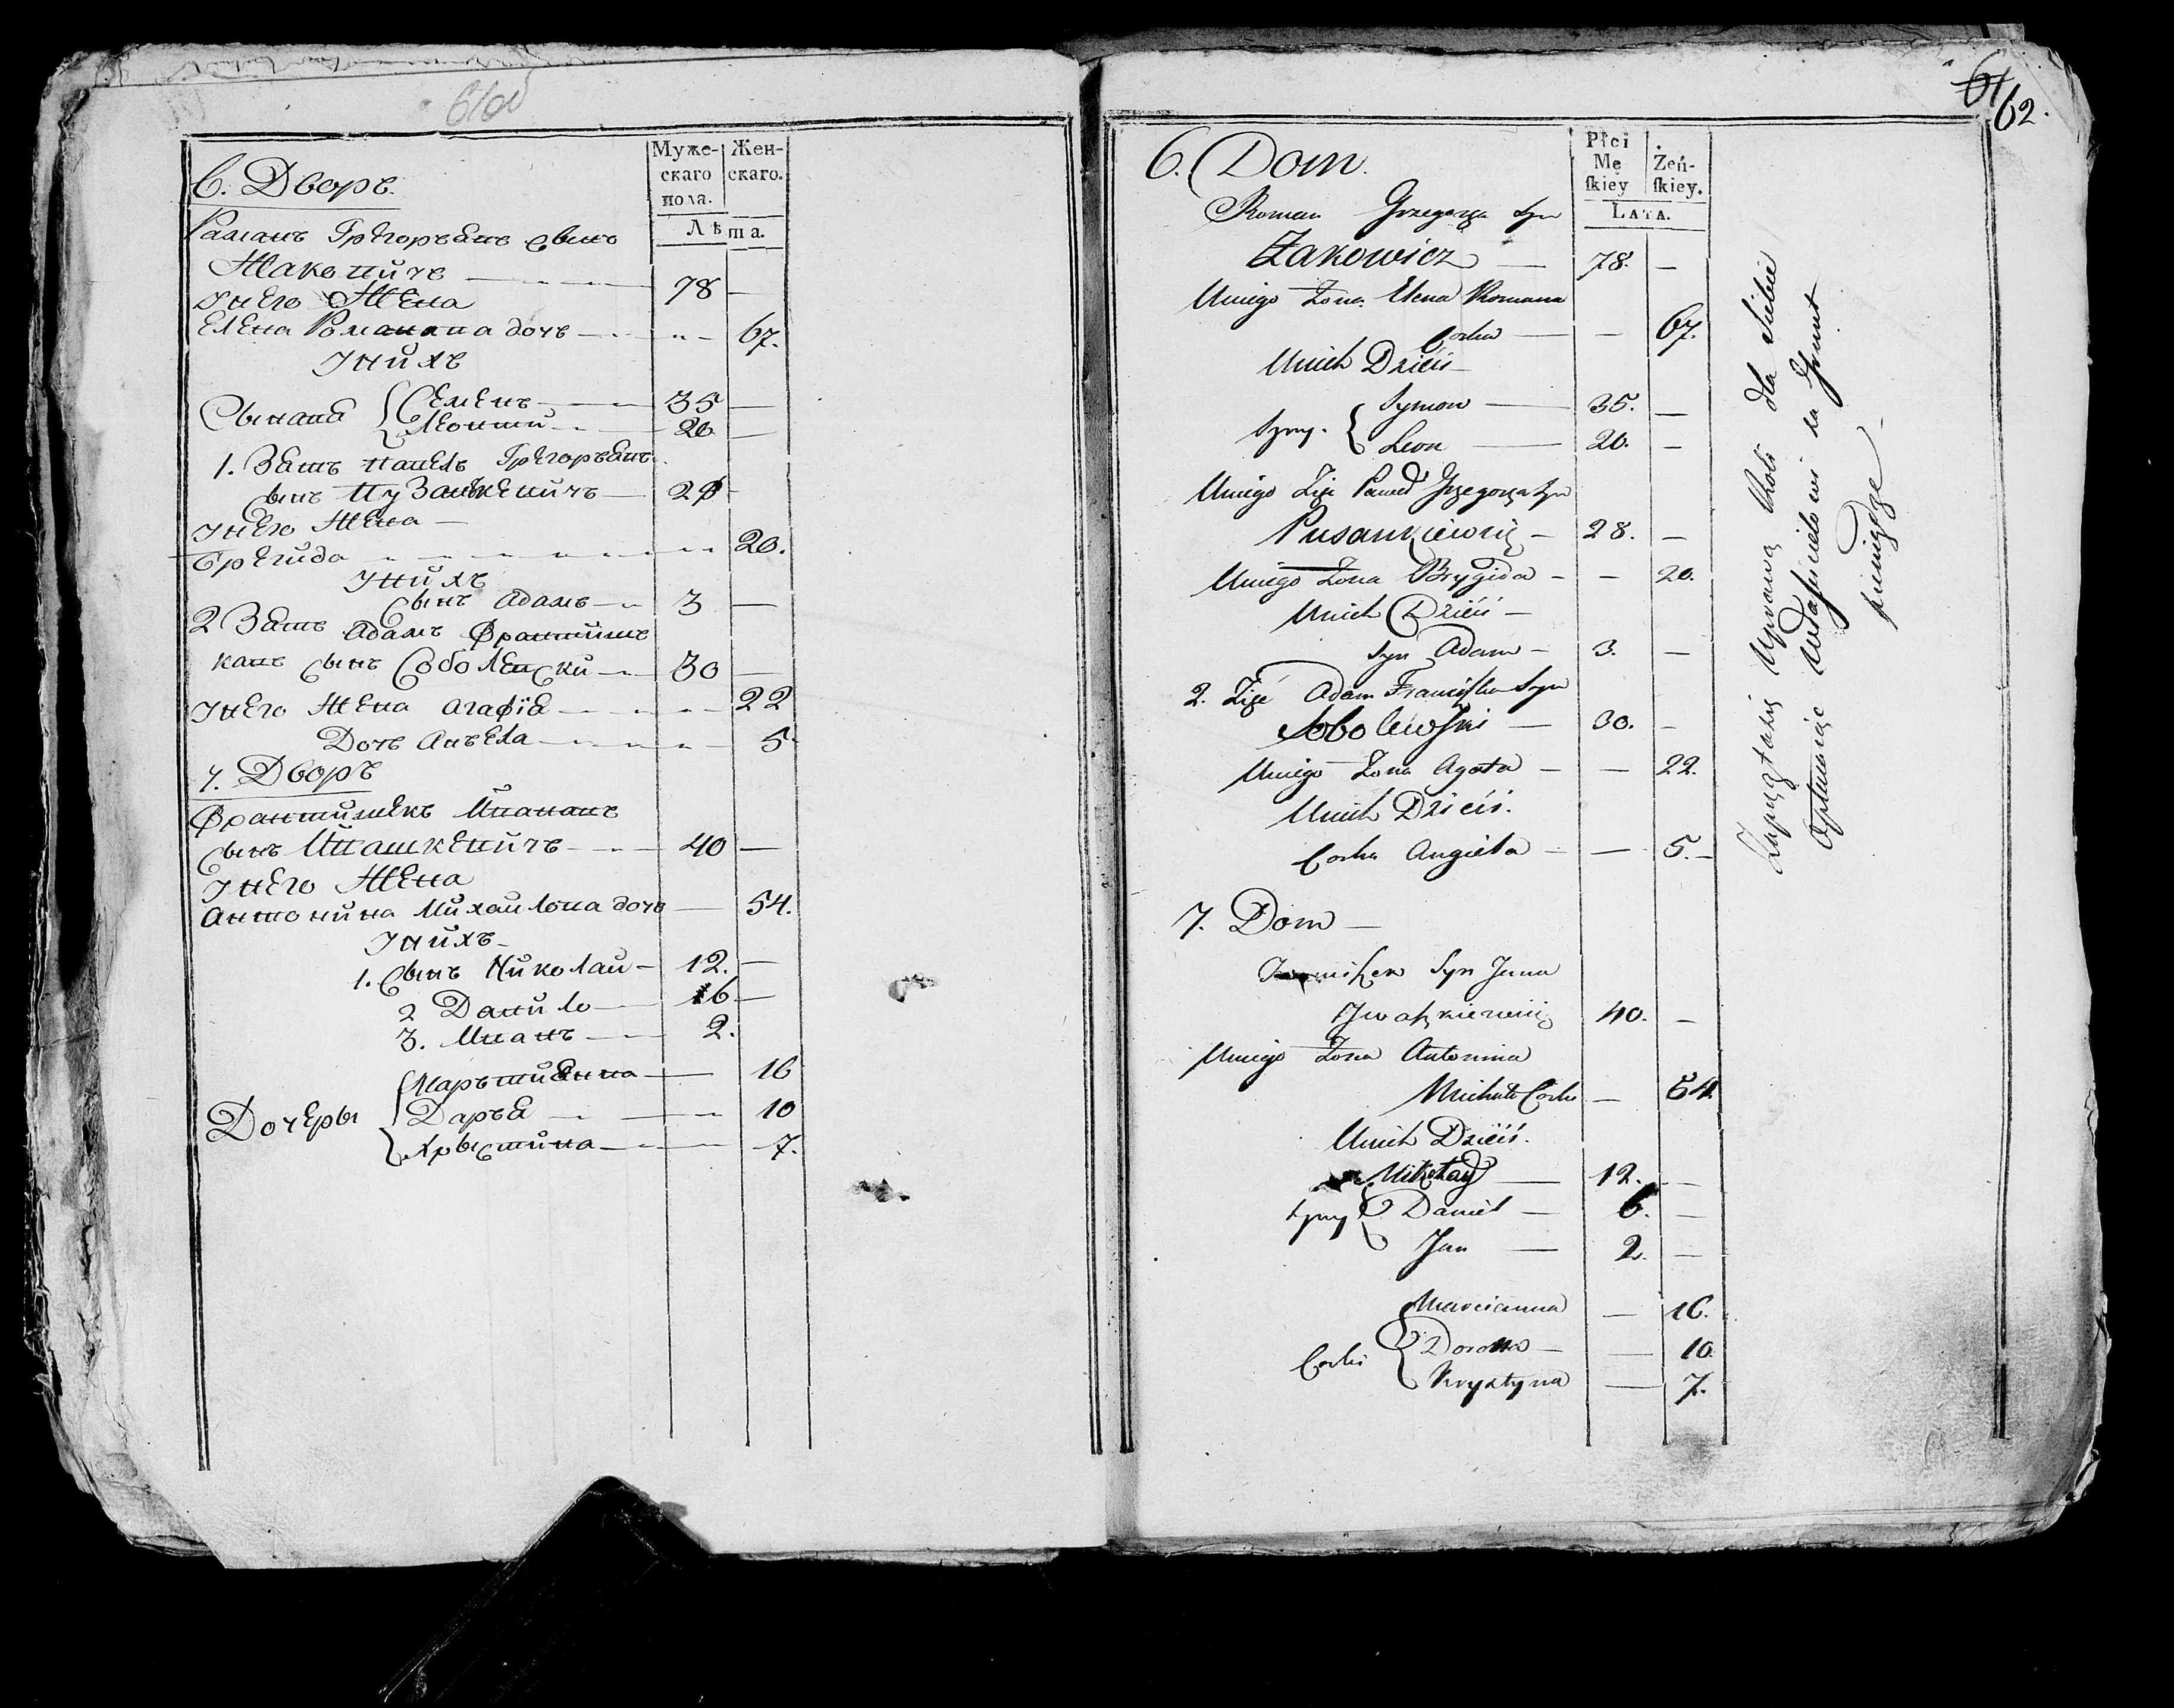 61об
6. Дворъ.
Муже-
скаго
пола.
Жен-
скаго.
Лѣта.
Раманъ Грегорьевъ сынъ
Жаковичъ 78 —
У него Жена
Елена Романова дочь — 67.
У нихъ
Сыновя { Семенъ — 35 —
Леонти — 20 —
1. Зать Павелъ Грегорьевъ
сынъ Пузанкевичъ — 28 -
У него Жена —
Брегида — 20.
У нихъ
Сынъ Адамъ — 3 —
2 Зать Адамъ Францишъ
ковъ сынъ Соболевски — 30 —
У него Жена Агафія — 22
Дочь Анъела — 5.
7. Дворъ
Францишекъ Ивановъ
сынъ Ивашкевичъ — 40 —
У него Жена
Антонина Михайлова дочь — 54.
У нихъ -
1. Сынъ Николай — 12. —
2 Данило — 6 —
3. Иванъ — 2.
Дочеры { Марьтиянна — 16
Даръя — 10
Хрыстина — 7.
61
62.
6. Dom.
Płci
Mę
skiey
Żeń-
skiey.
LATA.
Roman Grzegorza Syn
Żakowicz — 78. —
Uniego Żona Elena Romana
Corka — — 67.
Unich Dzieci —
Syny. { Symon — 35. —
Leon — 20. —
Uniego Zięć Paweł Grzegorza Syn
Pusankiewicz — 28. —
Uniego Żona Brygida — — 20.
Unich Dzieci —
Syn Adam — 3. —
2. Zięć Adam Franciszka Syn
Sobolewski — 30. —
Uniego Żona Agata — — 22.
Unich Dzieci.
Corka Angieła — — 5. —
7. Dom —
Syn Jana
Iwaszkiewicz 40. —
Uniego Żona Antonina
Michała Corka — 54
Unich Dzieci.
Syny { Mikołay — 12. —
Daniel — 6. —
Jan — 2. —
Corki { Marcianna — 16.
Dorota — 10.
Krystyna — 7.
Uprawą Roli dla Siebie
opłacając za Grunt
pieniądze —